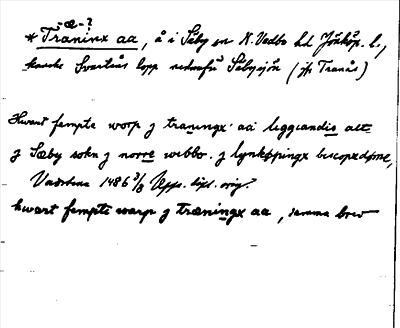 -æ-?
* Traninx aa, å i Säby sn N. Vedbo hd Jönköp. l.,
kanske Svartåns lopp nedanför Säbysjön (jfr Tranås)
Hwart fempte worp j traningx aa liggiandis alt
j Sæby sokn j norre webbo j lynkøpingx biscopxdøme,
Vadstena 1486 3/3 Upps. dipl. orig.
hwart fempte warp j træningx aa, samma brev